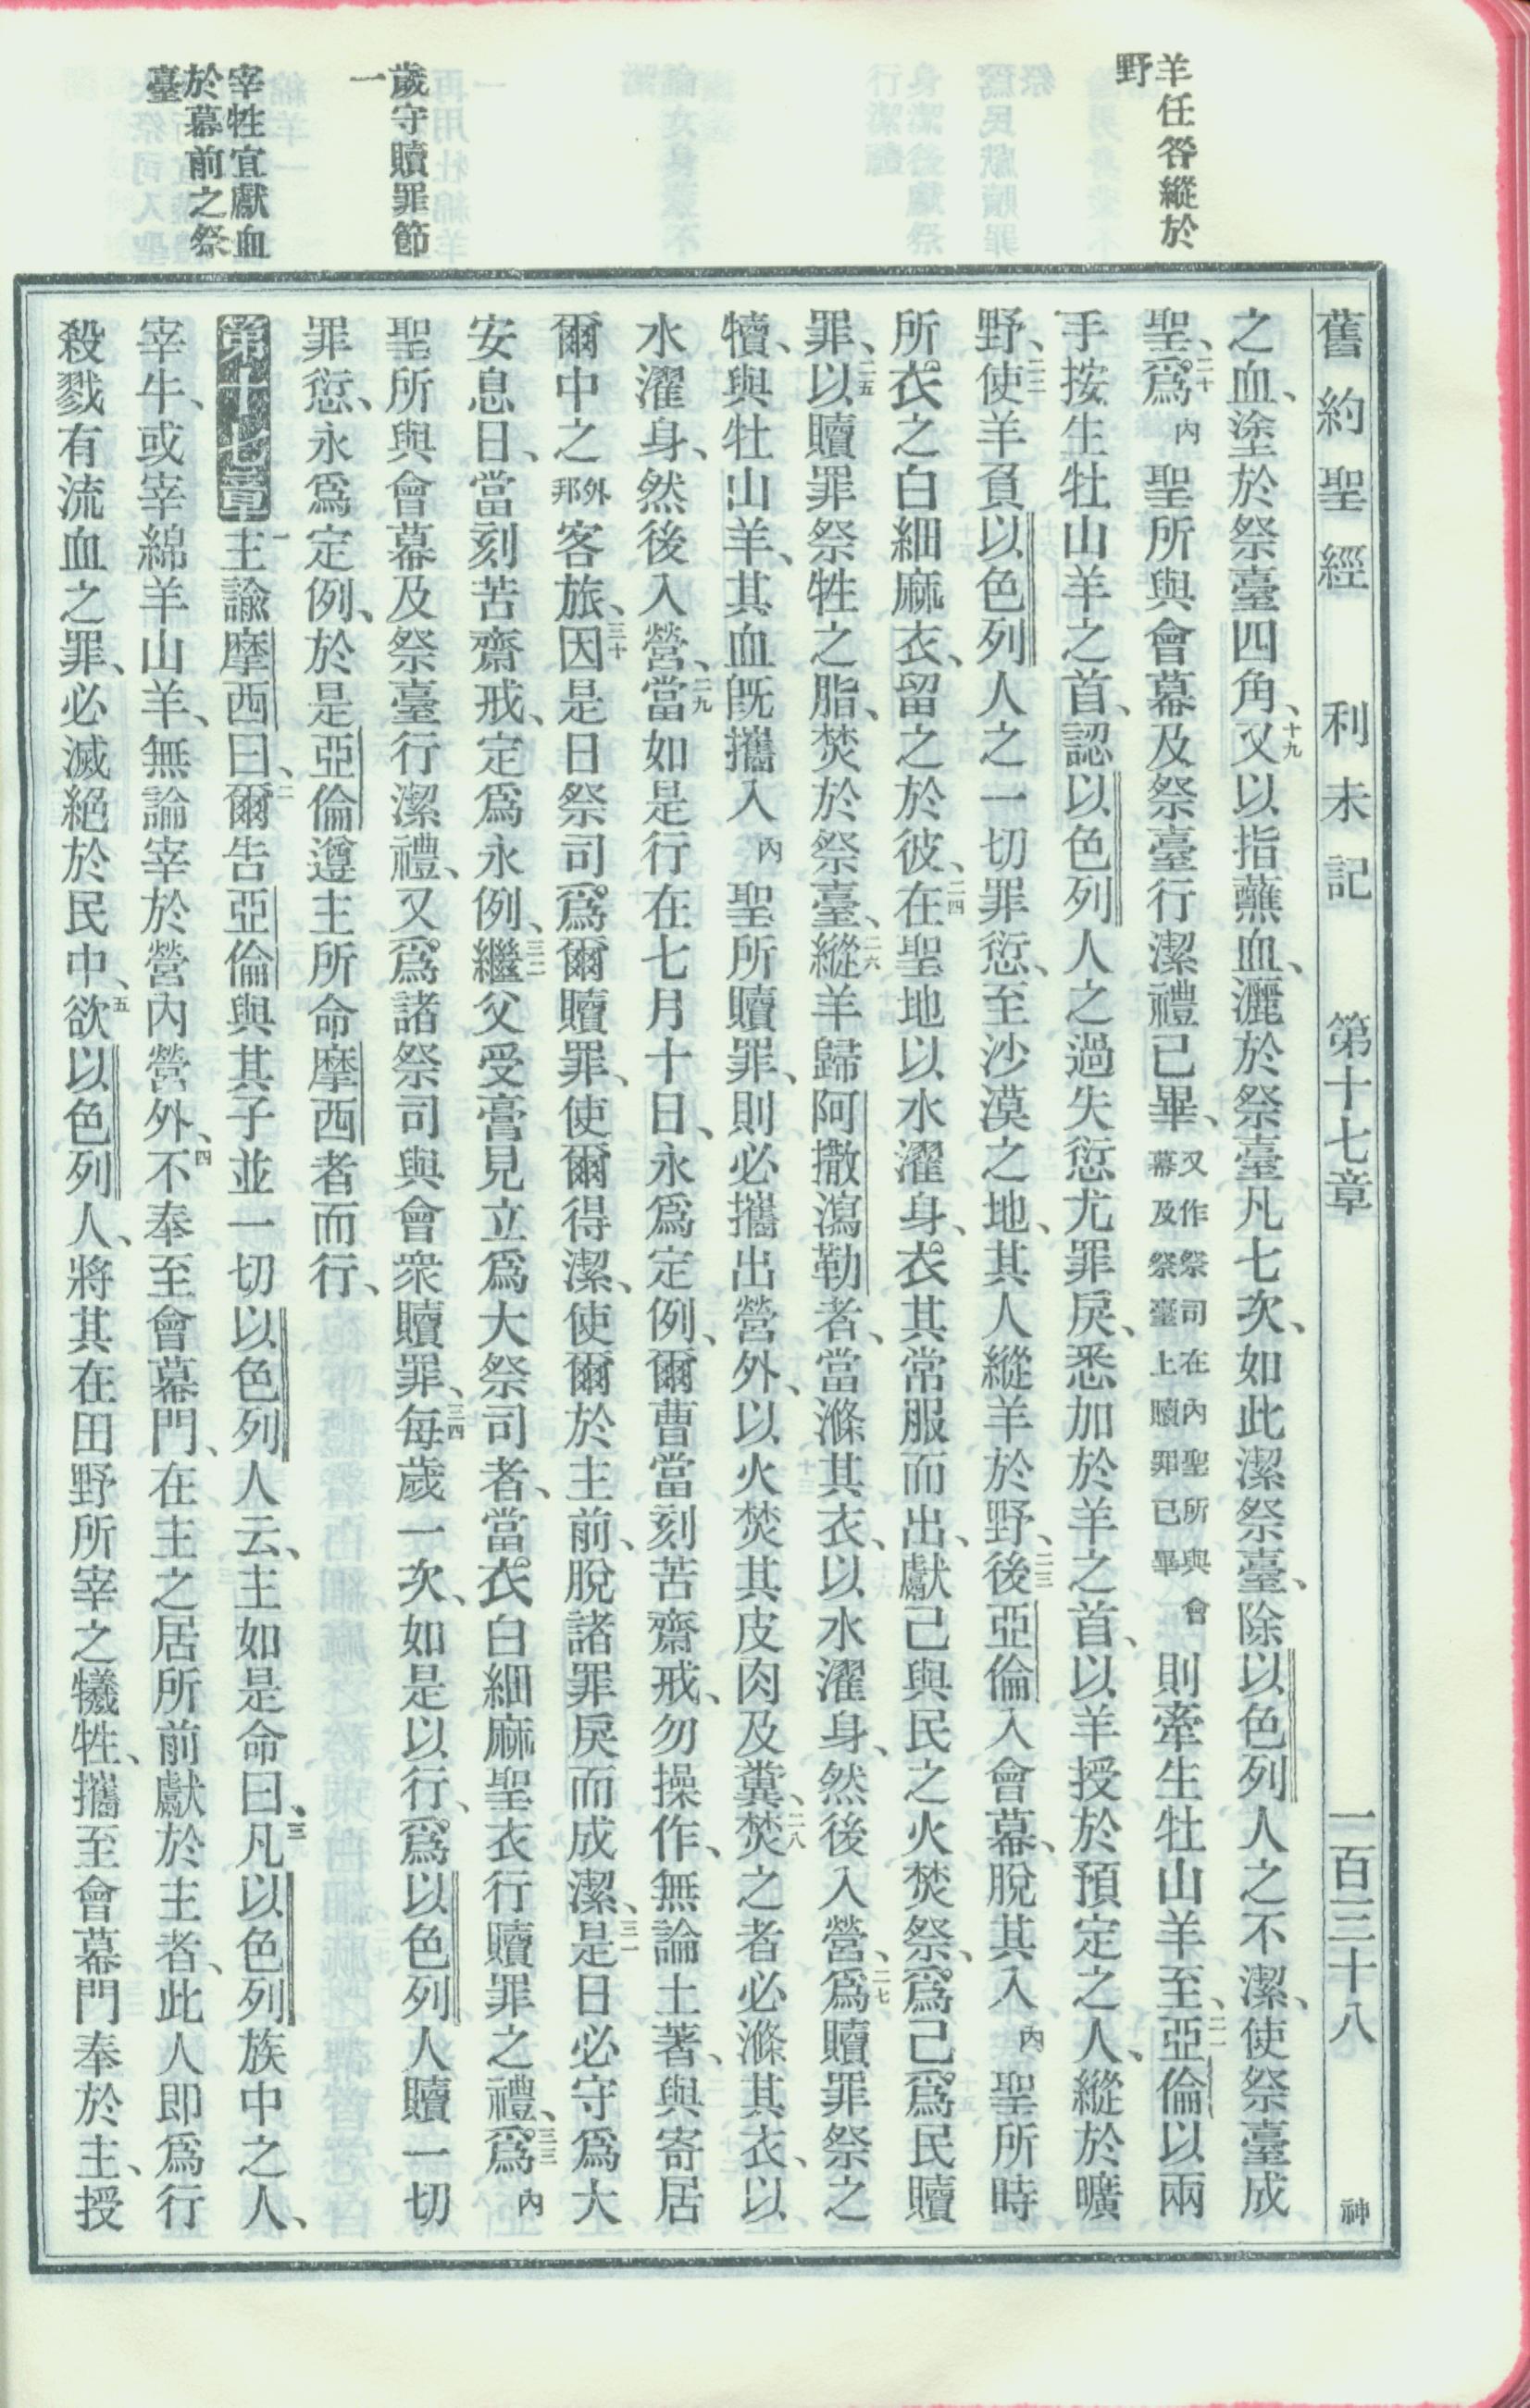 舊約聖經 利未記 第十七章 一百三十八 神
羊任咎縱於
野
歲守贖罪節
一
宰牲宜獻血
於幕前之祭
臺
之血、塗於祭臺四角、十九又以指蘸血、灑於祭臺凡七次、如此潔祭臺、除以色列人之不潔、使祭臺成
聖、二十爲內聖所與會幕及祭臺行潔禮已畢、又作祭司在內聖所與會幕及祭臺上贖罪已畢則牽生牡山羊至、二一亞倫以兩
手按生牡山羊之首、認以色列人之過失愆尤罪戾、悉加於羊之首、以羊授於預定之人、縱於曠
野、二二使羊負以色列人之一切罪愆、至沙漠之地、其人縱羊於野、二三後亞倫入會幕、脫其入內聖所時
所衣之白細麻衣、留之於彼、二四在聖地以水濯身、衣其常服而出、獻己與民之火焚祭、爲己爲民贖
罪、二五以贖罪祭牲之脂、焚於祭臺、二六縱羊歸阿撒瀉勒者、當滌其衣、以水濯身、然後入營、二七爲贖罪祭之
犢、與牡山羊、其血旣攜入內聖所贖罪、則必攜出營外、以火焚其皮肉及糞、二八焚之者必滌其衣、以
水濯身、然後入營、二九當如是行在七月十日、永爲定例、爾曹當刻苦齋戒、勿操作、無論土著、與寄居
爾中之外邦客旅、三十因是日祭司爲爾贖罪、使爾得潔、使爾於主前、脫諸罪戾而成潔、三一是日必守爲大
安息日、當刻苦齋戒、定爲永例、三二繼父受膏見立爲大祭司者、當衣白細麻聖衣行贖罪之禮、三三爲內
聖所與會幕及祭臺行潔禮、又爲諸祭司與會衆贖罪、三四每歲一次、如是以行、爲以色列人贖一切
罪愆、永爲定例、於是亞倫遵主所命摩西者而行、
第十七章 一主諭摩西曰、二爾告亞倫與其子並一切以色列人云、主如是命曰、三凡以色列族中之人、
宰牛、或宰綿羊山羊、無論宰於營內營外、四不奉至會幕門、在主之居所前獻於主者、此人即爲行
殺戮有流血之罪、必滅絕於民中、五欲以色列人、將其在田野所宰之犧牲、攜至會幕門奉於主、授